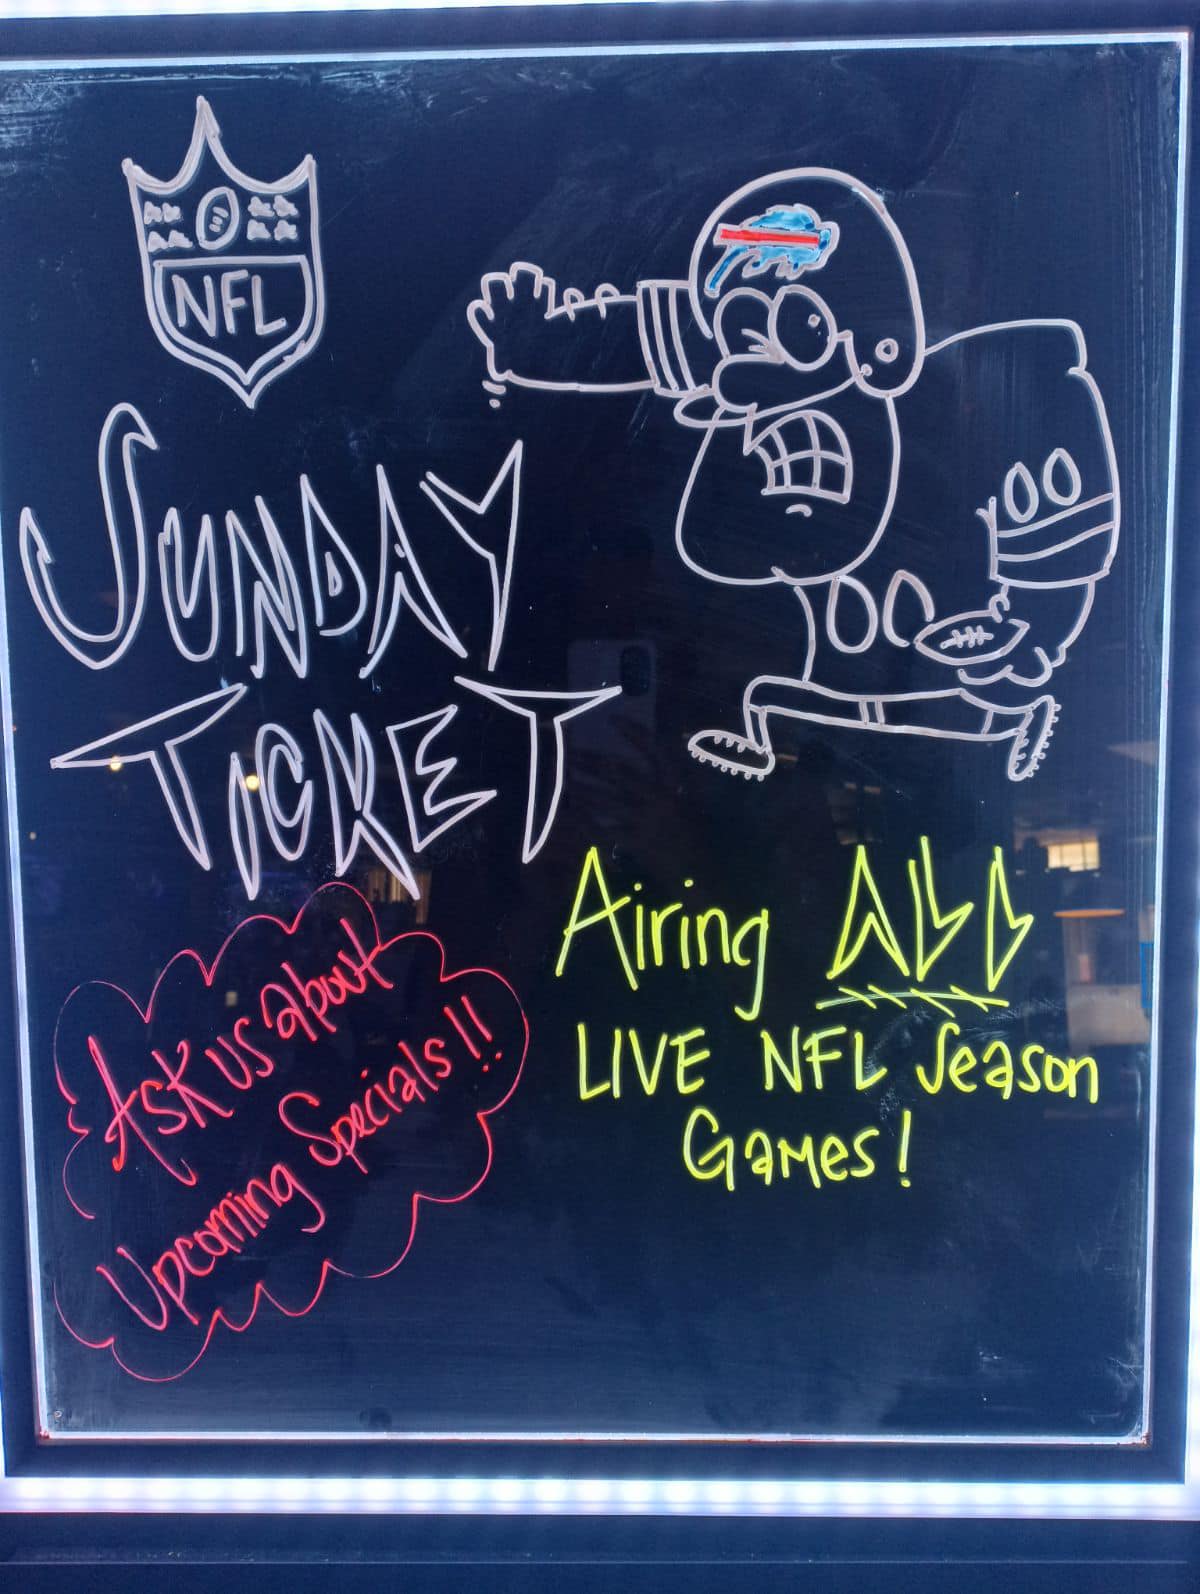 NFL
SUNDAY
TICKET
00
00
Airing ALL
LIVE NFL Season
Games!
Ask us about
Upcoming Specials!!